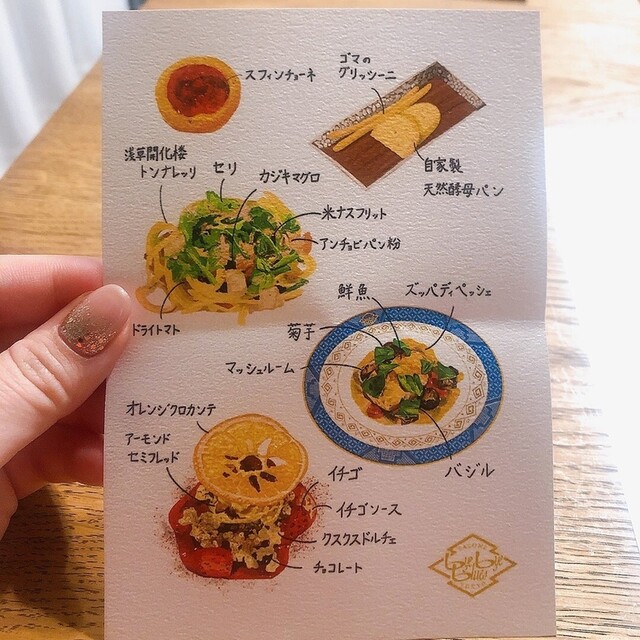 スフィンチョーネ
ゴマの
グリッシーニ
自家製
天然酵母パン
浅草開化楼
トンナレッリ
セリ
カジキマグロ
米ナスフリット
アンチョビパン粉
ドライトマト
鮮魚
ズッパディペッシェ
菊芋
マッシュルーム
バジル
オレンジクロカンテ
アーモンド
セミフレッド
イチゴ
イチゴソース
クスクスドルチェ
チョコレート